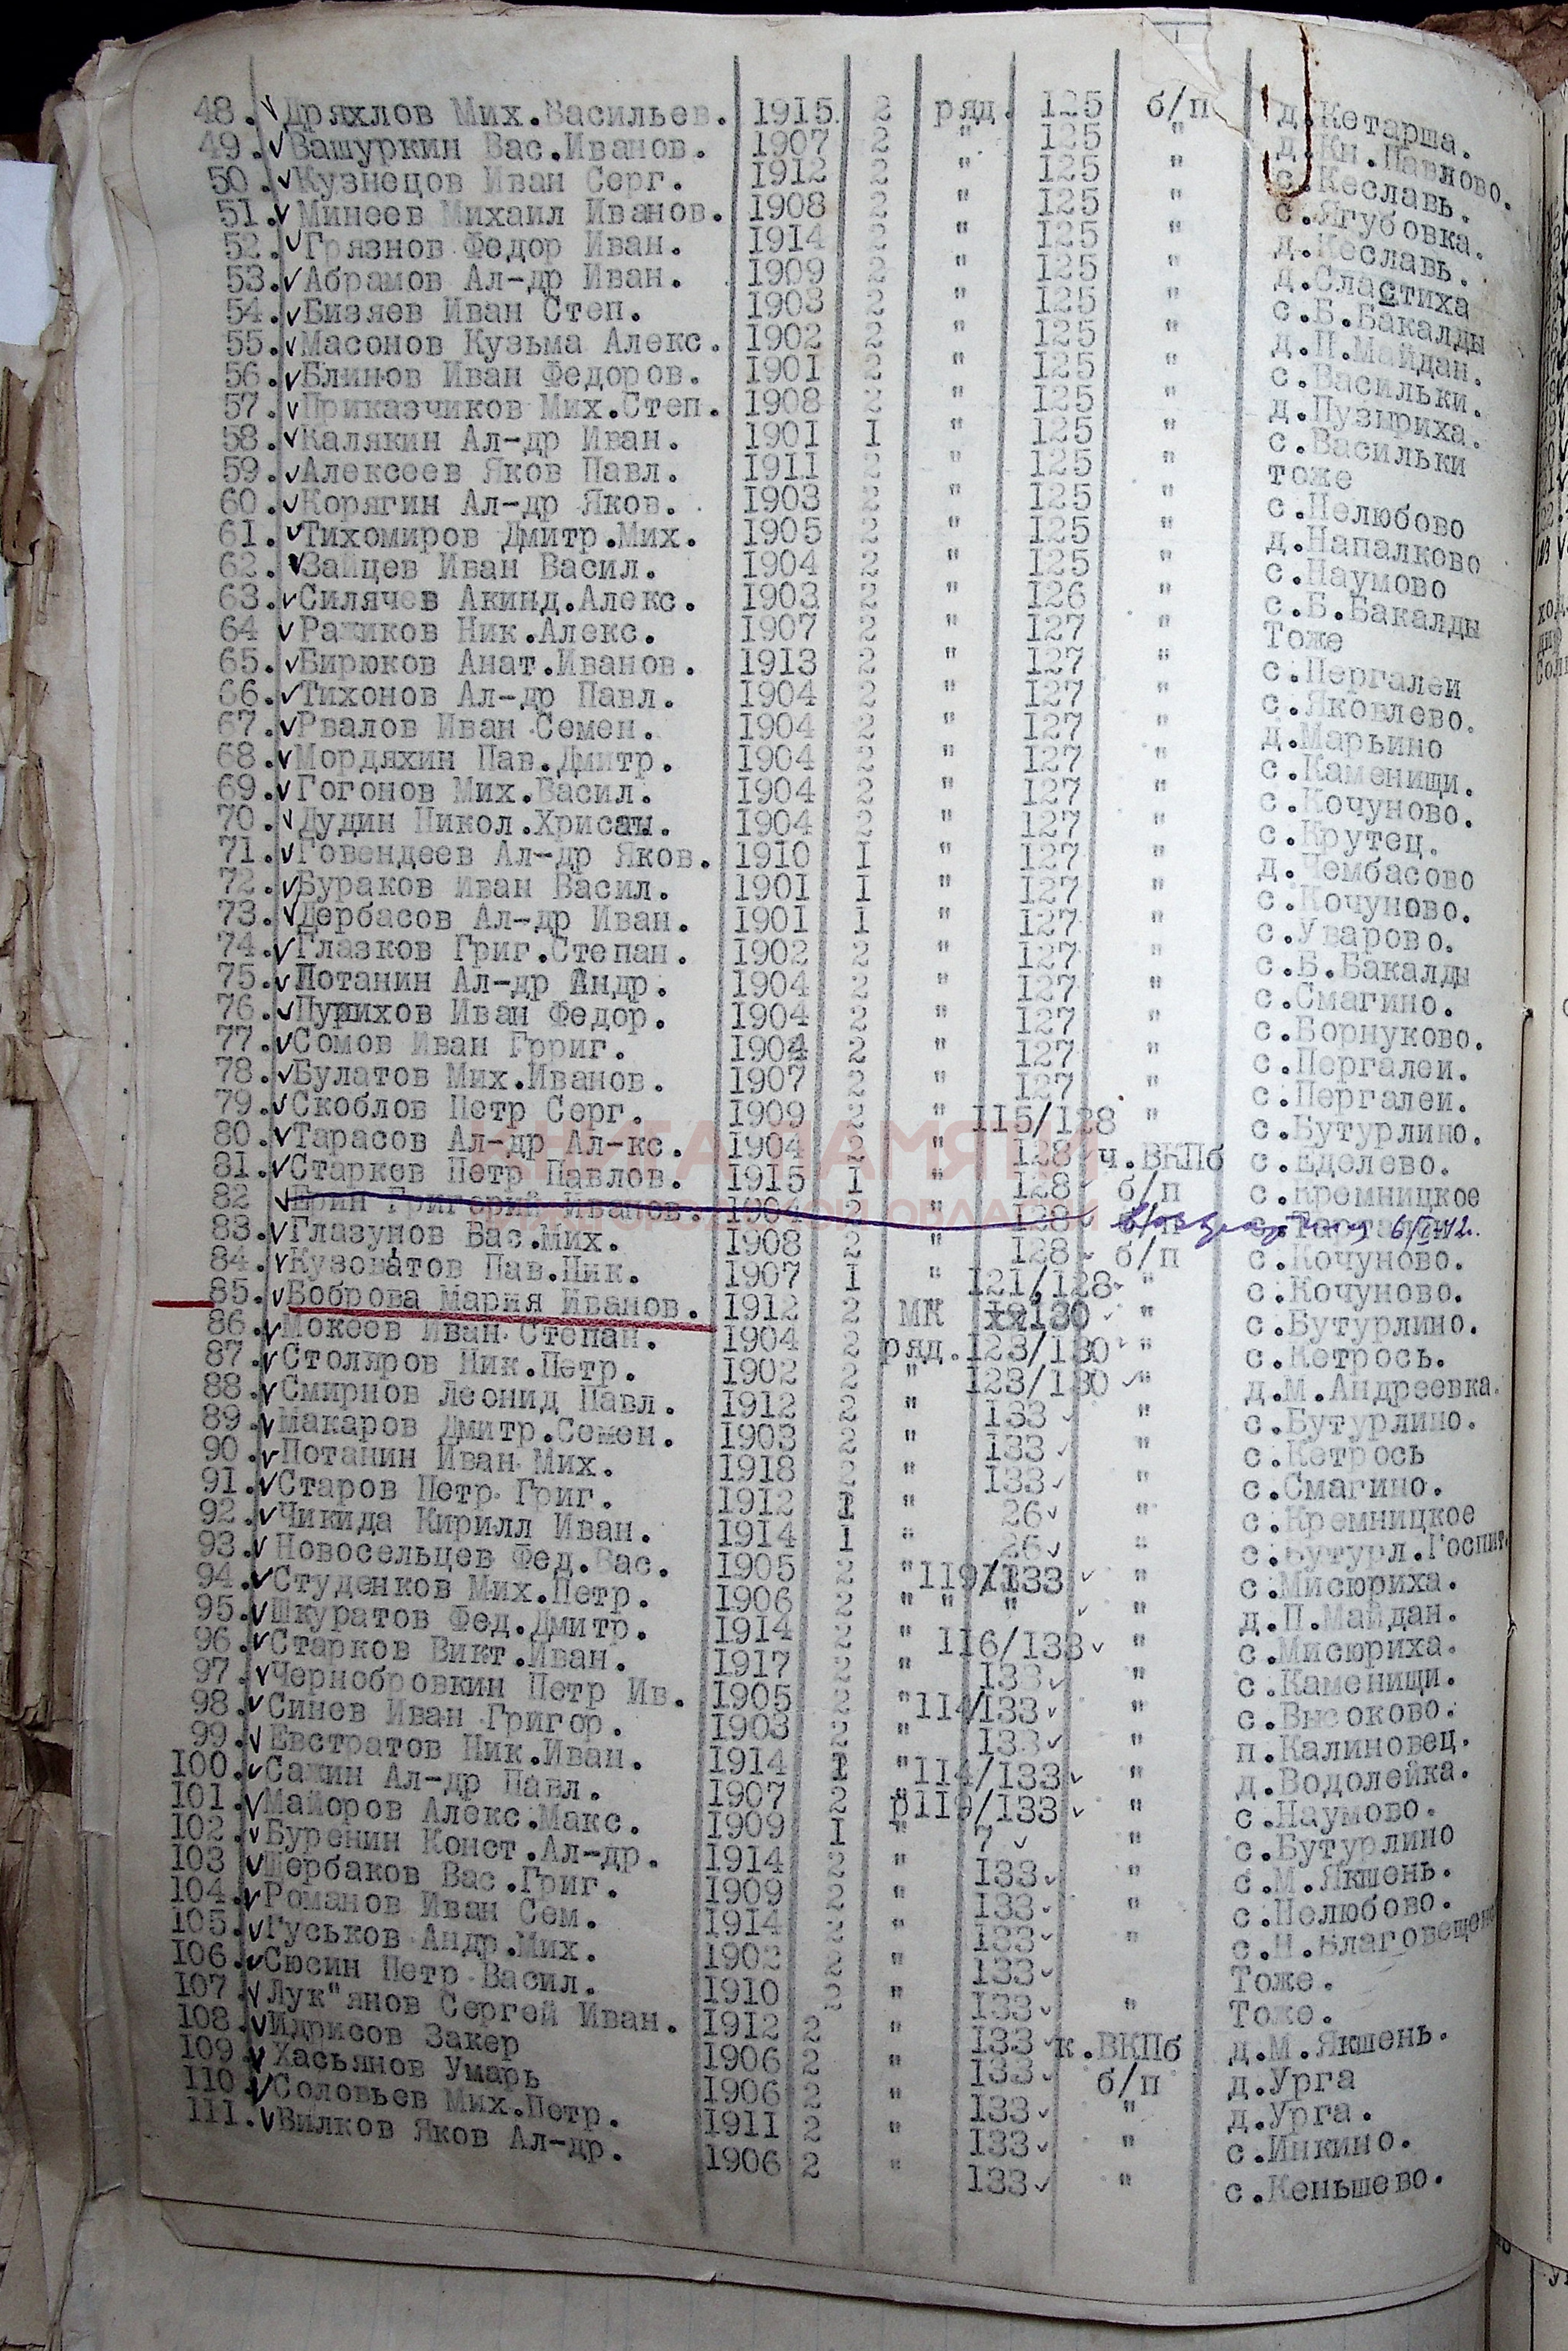 48. Дряхлов Мих.Васильев. 1915. 2 ряд. 125 б/п д.Кетарша.
49. Вашуркин Вас.Иванов. 1907 2 " 125 " д.Кн.Павлово.
50. Кузнецов Иван Серг. 1912 2 " 125 " с.Кеславь.
51. Минеев Михаил Иванов. 1908 2 " 125 " с.Ягубовка.
52. Грязнов Федор Иван. 1914 2 " 125 " д.Кеславь.
53. Абрамов Ал-др Иван. 1909 2 " 125 " д.Сластиха
54. Бизяев Иван Степ. 1903 2 " 125 " с.Б.Бакалды
55. Масонов Кузьма Алекс. 1902 2 " 125 " д.П.Майдан.
56. Блинов Иван Федоров. 1901 2 " 125 " с.Васильки.
57. Приказчиков Мих.Степ. 1908 2 " 125 " д.Пузыриха.
58. Калякин Ал-др Иван. 1901 I " 125 " с.Васильки
59. Алексеев Яков Павл. 1911 2 " 125 " тоже
60. Корягин Ал-др Яков. 1903 2 " 125 " с.Нелюбово
61. Тихомиров Дмитр.Мих. 1905 2 " 125 " д.Напалково
62. Зайцев Иван Васил. 1904 2 " 125 " с.Наумово
63. Силячев Акинд.Алекс. 1903 2 " 126 " с.Б.Бакалды
64 Ражиков Ник.Алекс. 1907 2 " 127 " Тоже
65. Бирюков Анат.Иванов. 1913 2 " 127 " с.Пергалеи
66. Тихонов Ал-др Павл. 1904 2 " 127 " с.Яковлево.
67. Рвалов Иван Семен. 1904 2 " 127 " д.Марьино
68. Мордяхин Пав.Дмитр. 1904 2 " 127 " с.Каменищи.
69. Гогонов Мих.Васил. 1904 2 " 127 " с.Кочуново.
70. Дудин Никол.Хрисан. 1904 2 " 127 " с.Крутец.
71. Говендеев Ал-др Яков. 1910 I " 127 " д.Чембасово
72. Бураков Иван Васил. 1901 I " 127 " с.Кочуново.
73. Дербасов Ал-др Иван. 1901 I " 127 " с.Уварово.
74. Глазков Григ.Степан. 1902 2 " 127 " с.Б.Бакалды
75. Потанин Ал-др Андр. 1904 2 " 127 " с.Смагино.
76. Пурихов Иван Федор. 1904 2 " 127 " с.Борнуково.
77. Сомов Иван Грриг. 1904 2 " 127 " с.Пергалеи.
78. Булатов Мих.Иванов. 1907 2 " 127 " с.Пергалеи.
79. Скоблов Петр Серг. 1909 2 " 115/128 " с.Бутурлино.
80. Тарасов Ал-др Ал-кс. 1904 2 " 128 ч.ВКПб с.Еделево.
81. Старкев Петр Павлов. 1915 I " 128 б/п с.Кремницкое
82 Ерин Григорий Иванов. 1904 2 " 128 6/IV-42.
83. Глазунов Вас.Мих. 1908 2 " 128 б/п с.Кочуново.
84. Кузоватов Пав.Ник. 1907 I " 121/128 " с.Кочуново.
85. Боброва Мария Иванов. 1912 2 МК 130 " с.Бутурлино.
86. Мокеев Иван Степан. 1904 2 ряд. 123/130 " с.Кетрось.
87. Столяров Ник.Петр. 1902 2 " 123/130 " д.М.Андреевка.
88. Смирнов Леонид Павл. 1912 2 " 133 " с.Бутурлино.
89. Макаров Дмитр.Семен. 1903 2 " 133 " с.Кетрось
90. Потанин Иван Мих. 1918 2 " 133 " с.Смагино.
91. Старов Петр Григ. 1912 I " 26 " с.Кремницкое
92. Чикида Кирилл Иван. 1914 I " 26 " с.Бутурл.Госпит.
93. Новосельцев Фед.Вас. 1905 2 " 119/133 " с.Мисюриха.
94. Студенков Мих.Петр. 1906 2 " " " " д.П.Майдан.
95. Шкуратов Фед.Дмитр. 1914 2 " 116/133 " с.Мисюриха.
96. Старков Викт.Иван. 1917 2 " 133 " с.Каменищи.
97. Чернобровкин Петр Ив. 1905 2 " 114/133 " с.Высоково.
98. Синев Иван Григор. 1903 2 " 133 " п.Калиновец.
99. Евстратов Ник.Иван. 1914 I " 114/133 " д.Водолейка.
100. Сажин Ал-др Павл. 1907 2 " 119/133 " с.Наумово.
101. Майоров Алекс.Макс. 1909 I " 7 " с.Бутурлино
102. Буренин Конст.Ал-др. 1914 2 " 133 " с.М.Якшень.
103 Щербаков Вас.Григ. 1909 2 " 133 " с.Нелюбово.
104. Романов Иван Сем. 1914 2 " 133 " с.Н.Благовещенс
105. Гуськов Андр.Мих. 1902 2 " 133 Тоже.
106. Сюсин Петр Васил. 1910 2 " 133 " Тоже.
107. Лук"янов Сергей Иван. 1912 2 " 133 к.ВКПб д.М.Якшень.
108. Идрисов Закер 1906 2 " 133 б/п д.Урга
109. Хасьянов Умарь 1906 2 " 133 " д.Урга.
110. Соловьев Мих.Петр. 1911 2 " 133 " с.Инкино.
111. Вилков Яков Ал-др. 1906 2 " 133 " с.Кеньшево.